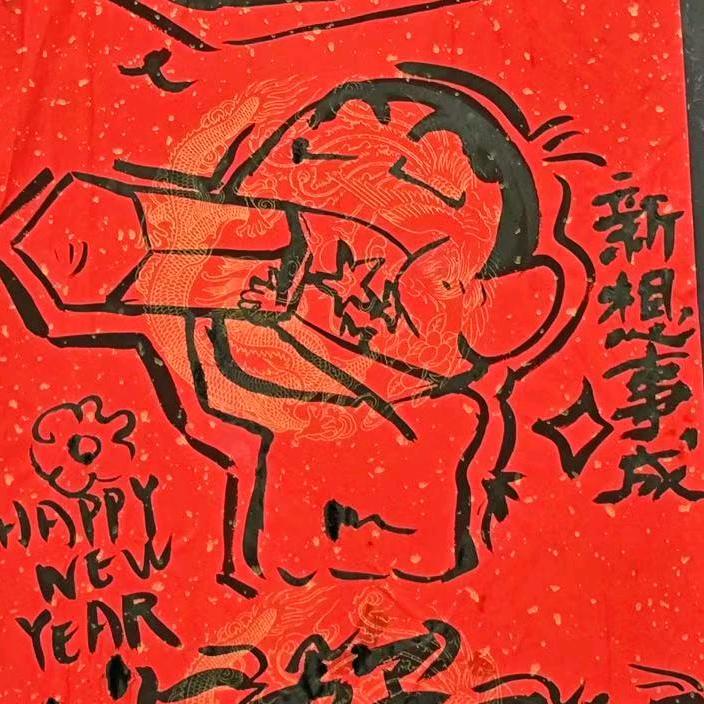 新想事成
HAPPY
NEW
YEAR